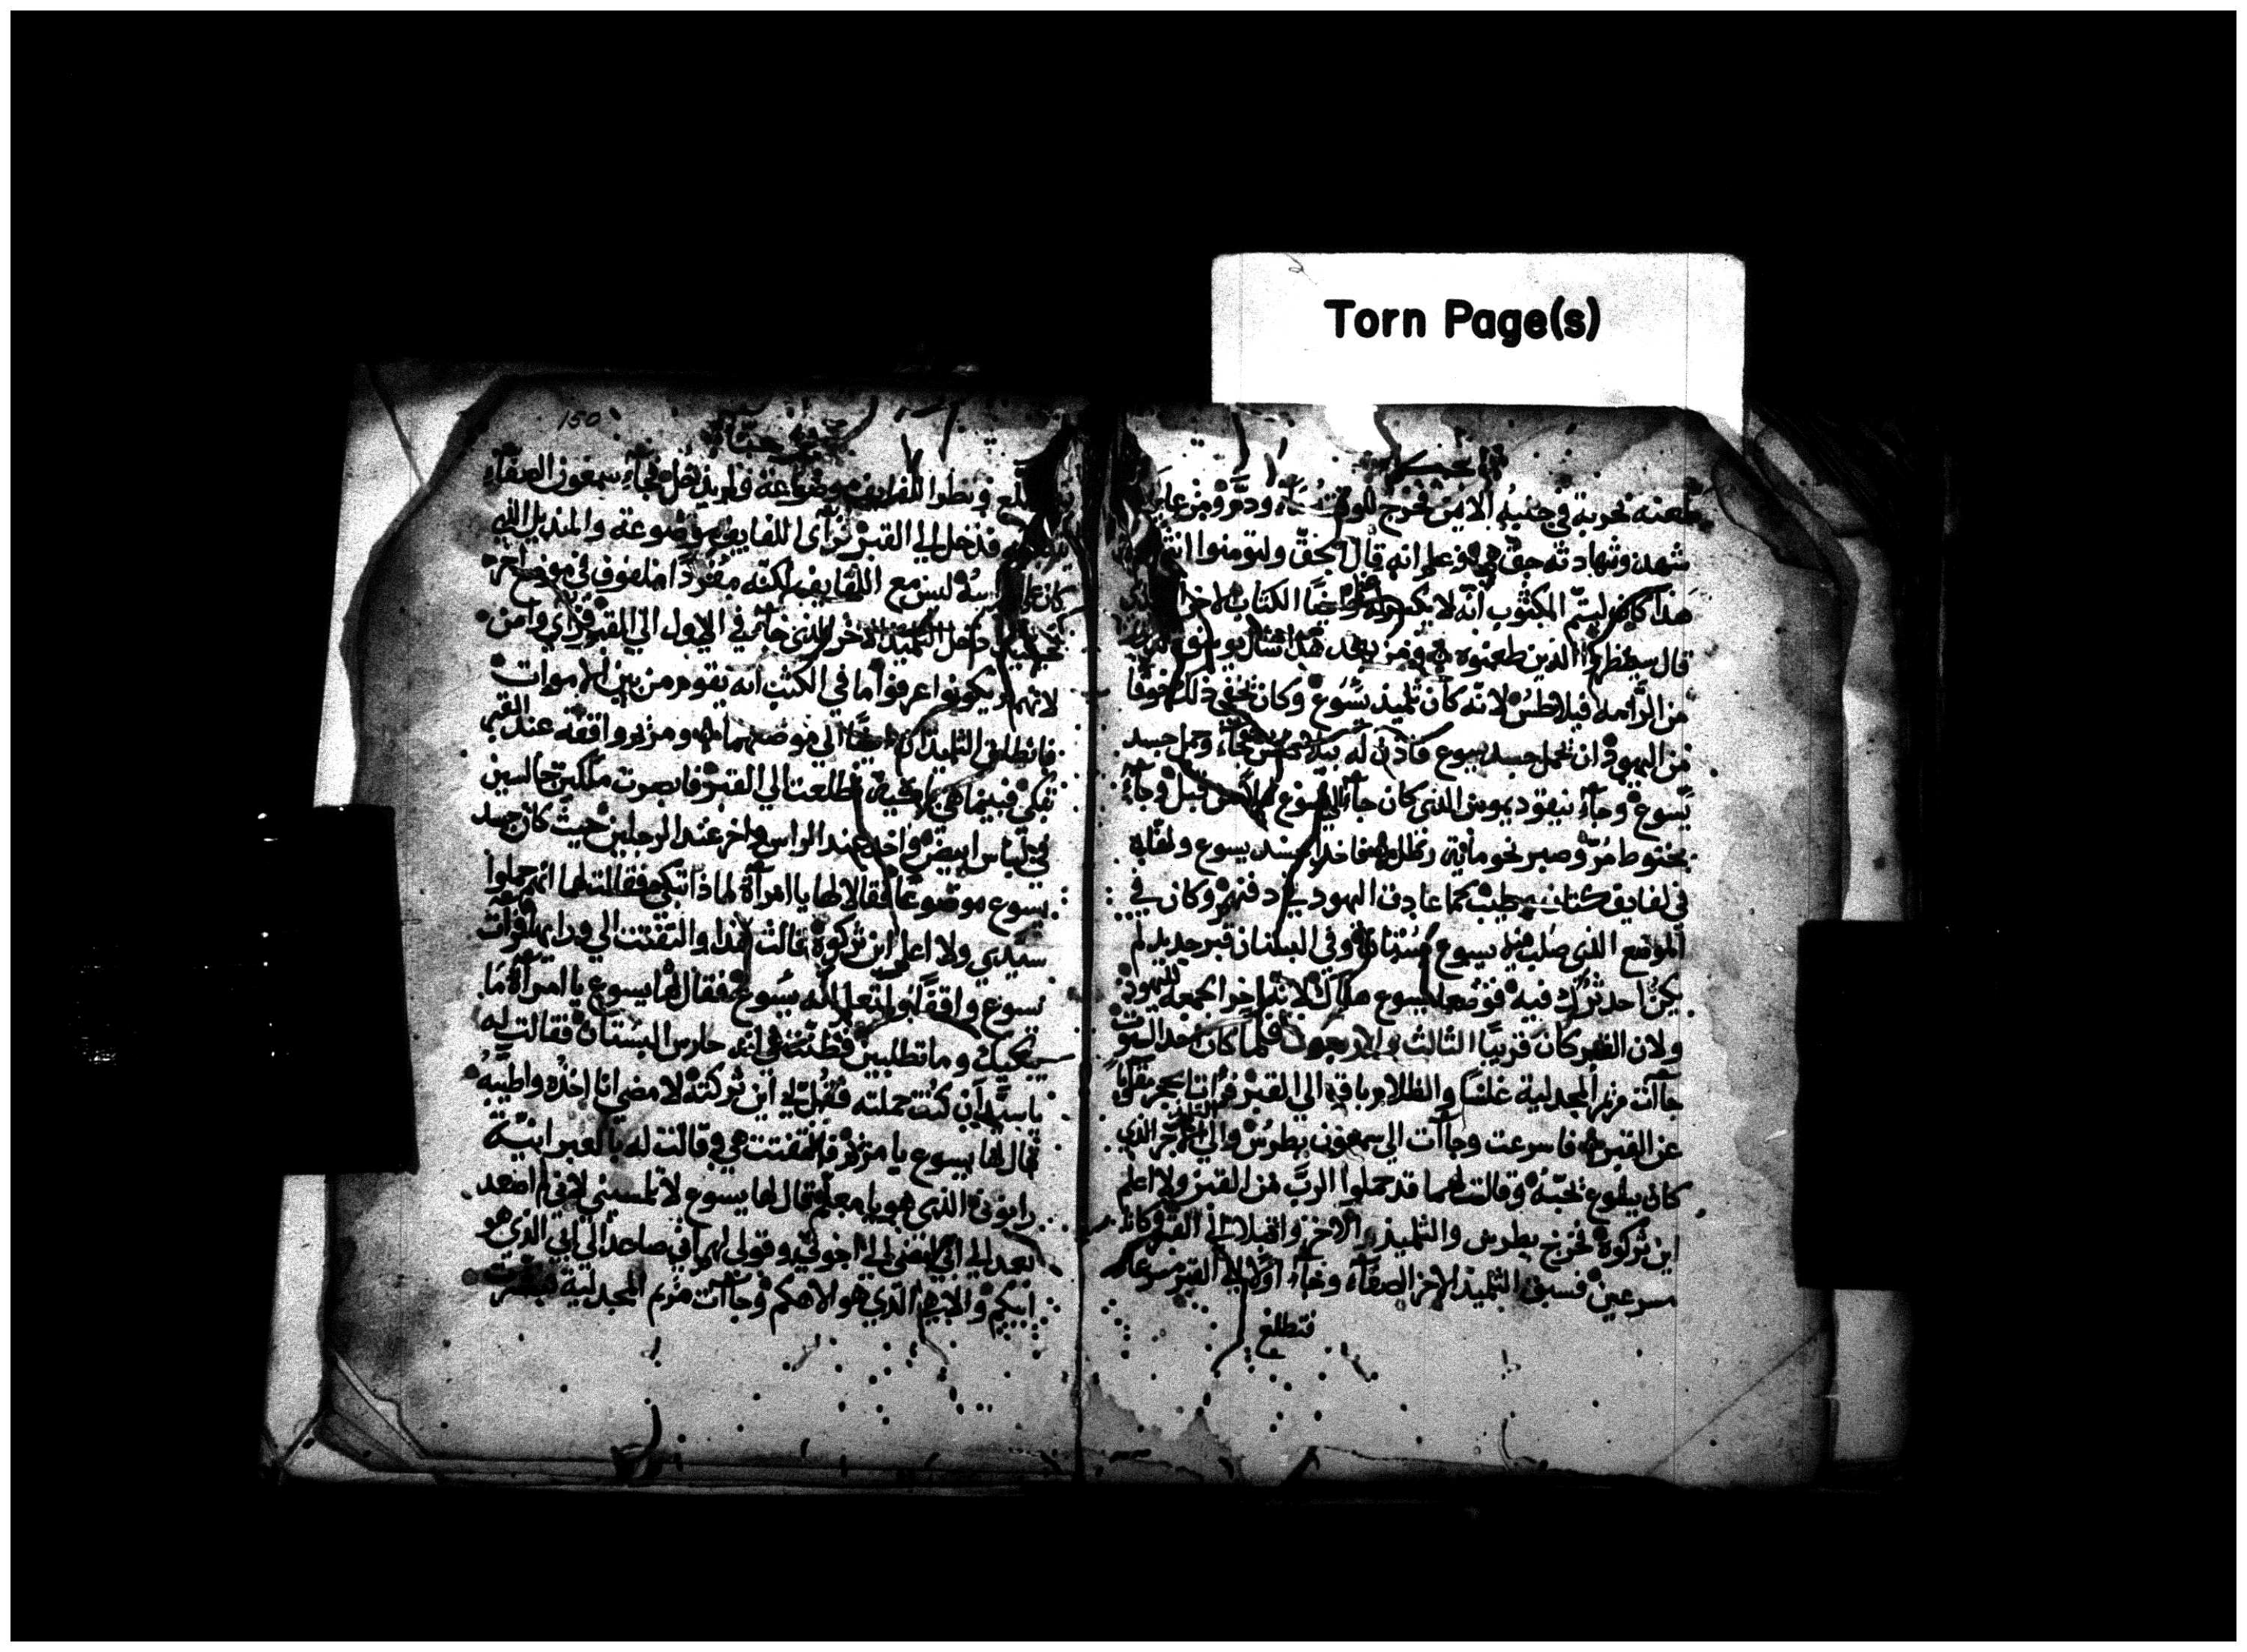 Torn Page(s)
طعنه بحربة في جنبه الايمن فخرج للوقت ماء ودم ومن عاين
شهد وشهادته حق هي وهو علم انه قال الحق ولتومنوا انتم
هذا كان ليتم المكتوب انه لا يكسر له عظم وايضًا الكتاب الاخر الذي
قال سينظرون الى الذين طعنوه ومن بعد هذا سال يوسف
من الرامه فيلاطس لانه كان تلميذ يسوع وكان يخفي ذلك خوفًا
من اليهود ان يحمل جسد يسوع فاذن له بيلاطس فجاء وحمل جسد
يسوع وجاء نيقوديموس الذى كان جاء الى يسوع ليلا من قبل وجاء
بحنوط مر وصبر نحو ماية رطل فاخذا جسد يسوع ولفاه
في لفايف كتان وطيب كما عادة اليهود في دفنهم وكان في
الموضع الذى صلب فيه يسوع بستان وفي البستان قبر جديد لم
يكن احد ترك فيه فوضعا يسوع هناك لانه اخر الجمعه لليهود
ولان القبر كان قريبًا الثالث والاربعون فلما كان احد السبوت
جاأت مريم المجدلية غلسًا والظلام باقه الى القبر فرات الحجر مقلوبًا
عن القبر فاسرعت وجاأت الى سمعون بطرس والى التلميذ الاخر الذي
كان يسوع يحبه وقالت لهما قد حملوا الرب من القبر ولا اعلم
اين تركوه فخرج بطرس والتلميذ الاخر واقبلا الى القبر وكانا
مسرعين فسبق التلميذ الاخر الصفاء وجاء اولا الى القبر مسرعا
فتطلع
150
فتطلع ونظر اللفايف موضوعة ولم يدخل فجاء سمعون الصفاء
فدخل الى القبر فرأى اللفايف موضوعة والمنديل التي
كان على راسه ليس مع اللفايف لكنه مفردًا ملفوف في موضع اخر
حينيذ دخل التلميذ الاخر الذى جاء في الاول الى القبر فراي وامن
لانهم لم يكونوا عرفوا ما في الكتب انه يقوم من بين الاموات
فانطلقى التلميذان ايضًا الى موضعهما ومريم واقفة عند القبر
تبكي فبينما هي باكية تطلعت الى القبر فابصرت ملكين جالسين
في لباس ابيض واحد عند الراس واخر عند الرجلين حيث كان جسد
يسوع موضوعًا فقالا لها يا امرأة لماذا تبكي فقالت لهما انهم حملوا
سيدي ولا اعلم اين تركوه قالت هذا والتفتت الى ورايها فرات
يسوع واقفًا ولم تعلم انه يسوع فقال لها يسوع يا امرأة ما
يبكيك وما تطلبين فظنت هي انه حارس البستان فقالت له
يا سيد ان كنت حملته فقل لي اين تركته لامضي انا اخذه واطيبه
قال لها يسوع يا مريم فالتفتت هي وقالت له بالعبرانية
رابوني الذي هو يا معلم قال لها يسوع لا تلمسيني لاني لم اصعد
بعد الى ابي امضي الى اخوتي وقولي لهم اني صاعد الى ابي الذي هو
ابيكم والاهي الذي هو الاهكم وجاأت مريم المجدلية فبشرت